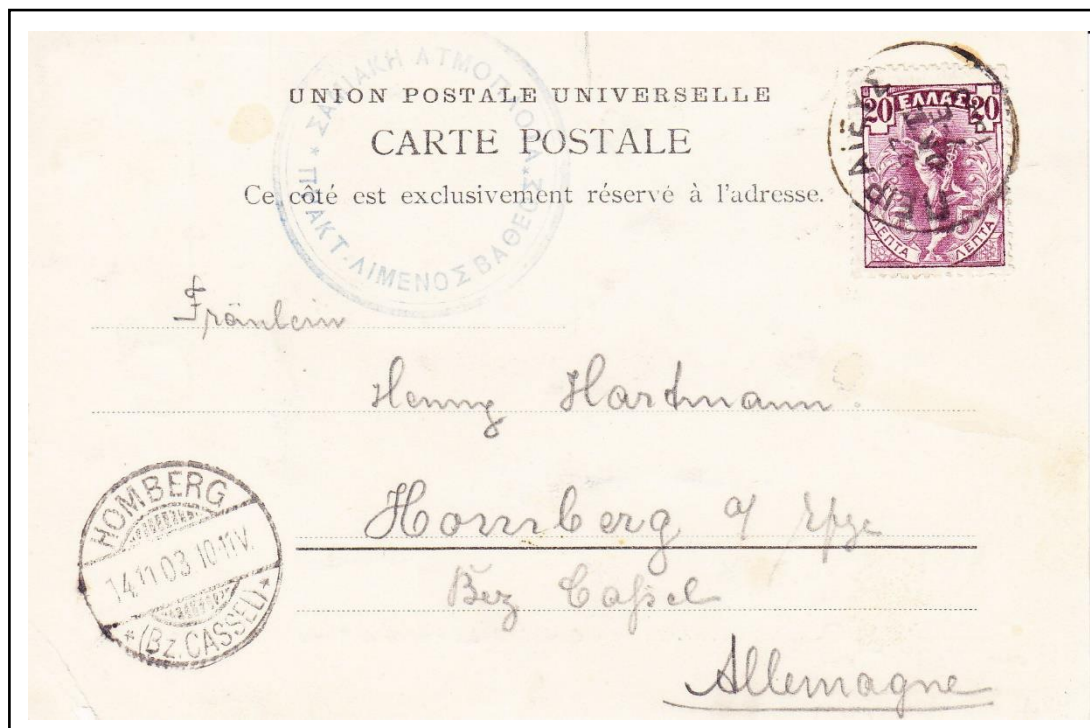 UNION POSTALE UNIVERSELLE
CARTE POSTALE
Ce côté est exclusivement réservé à l'adresse.
ΣΑΜΙΑΚΗ ΑΤΜΟΠΛΟΪΑ
ΠΡΑΚΤ. ΛΙΜΕΝΟΣ ΒΑΘΕΟΣ
20 ΕΛΛΑΣ 20
ΛΕΠΤΑ ΛΕΠΤΑ
Fräulein
Henny Hartmann
Homberg a/ Efze
Bez Cassel
Allemagne
HOMBERG
14.11.03 10-11V.
* (BZ. CASSEL) *